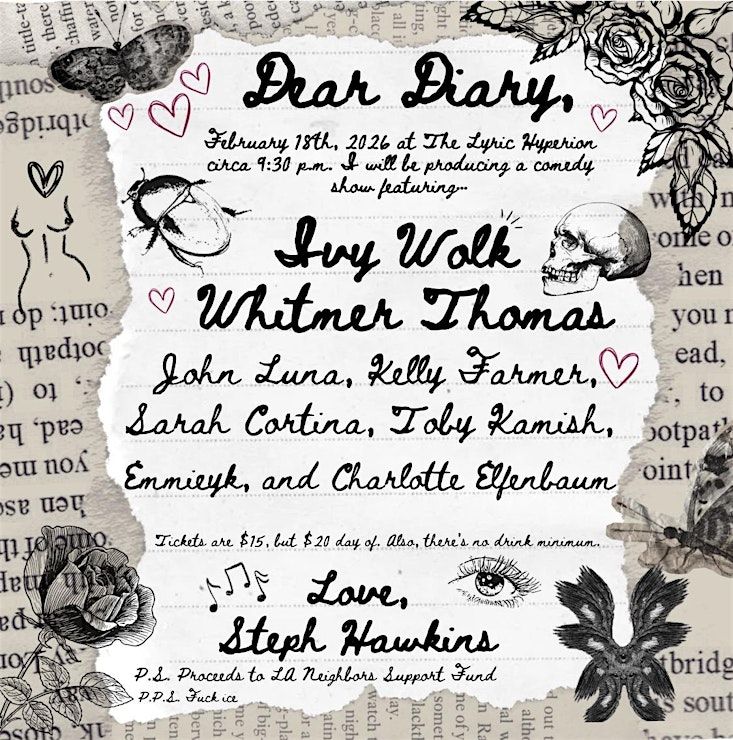 Dear Diary,
February 18th, 2026 at The Lyric Hyperion
circa 9:30 p.m. I will be producing a comedy
show featuring...
Ivy Wolk
Whitmer Thomas
John Luna, Kelly Farmer,
Sarah Cortina, Toby Kamish,
Emmieyk, and Charlotte Elfenbaum
Tickets are $15, but $20 day of. Also, there's no drink minimum.
Love,
Steph Hawkins
P.S. Proceeds to LA Neighbors Support Fund
P.P.S. Fuck ice